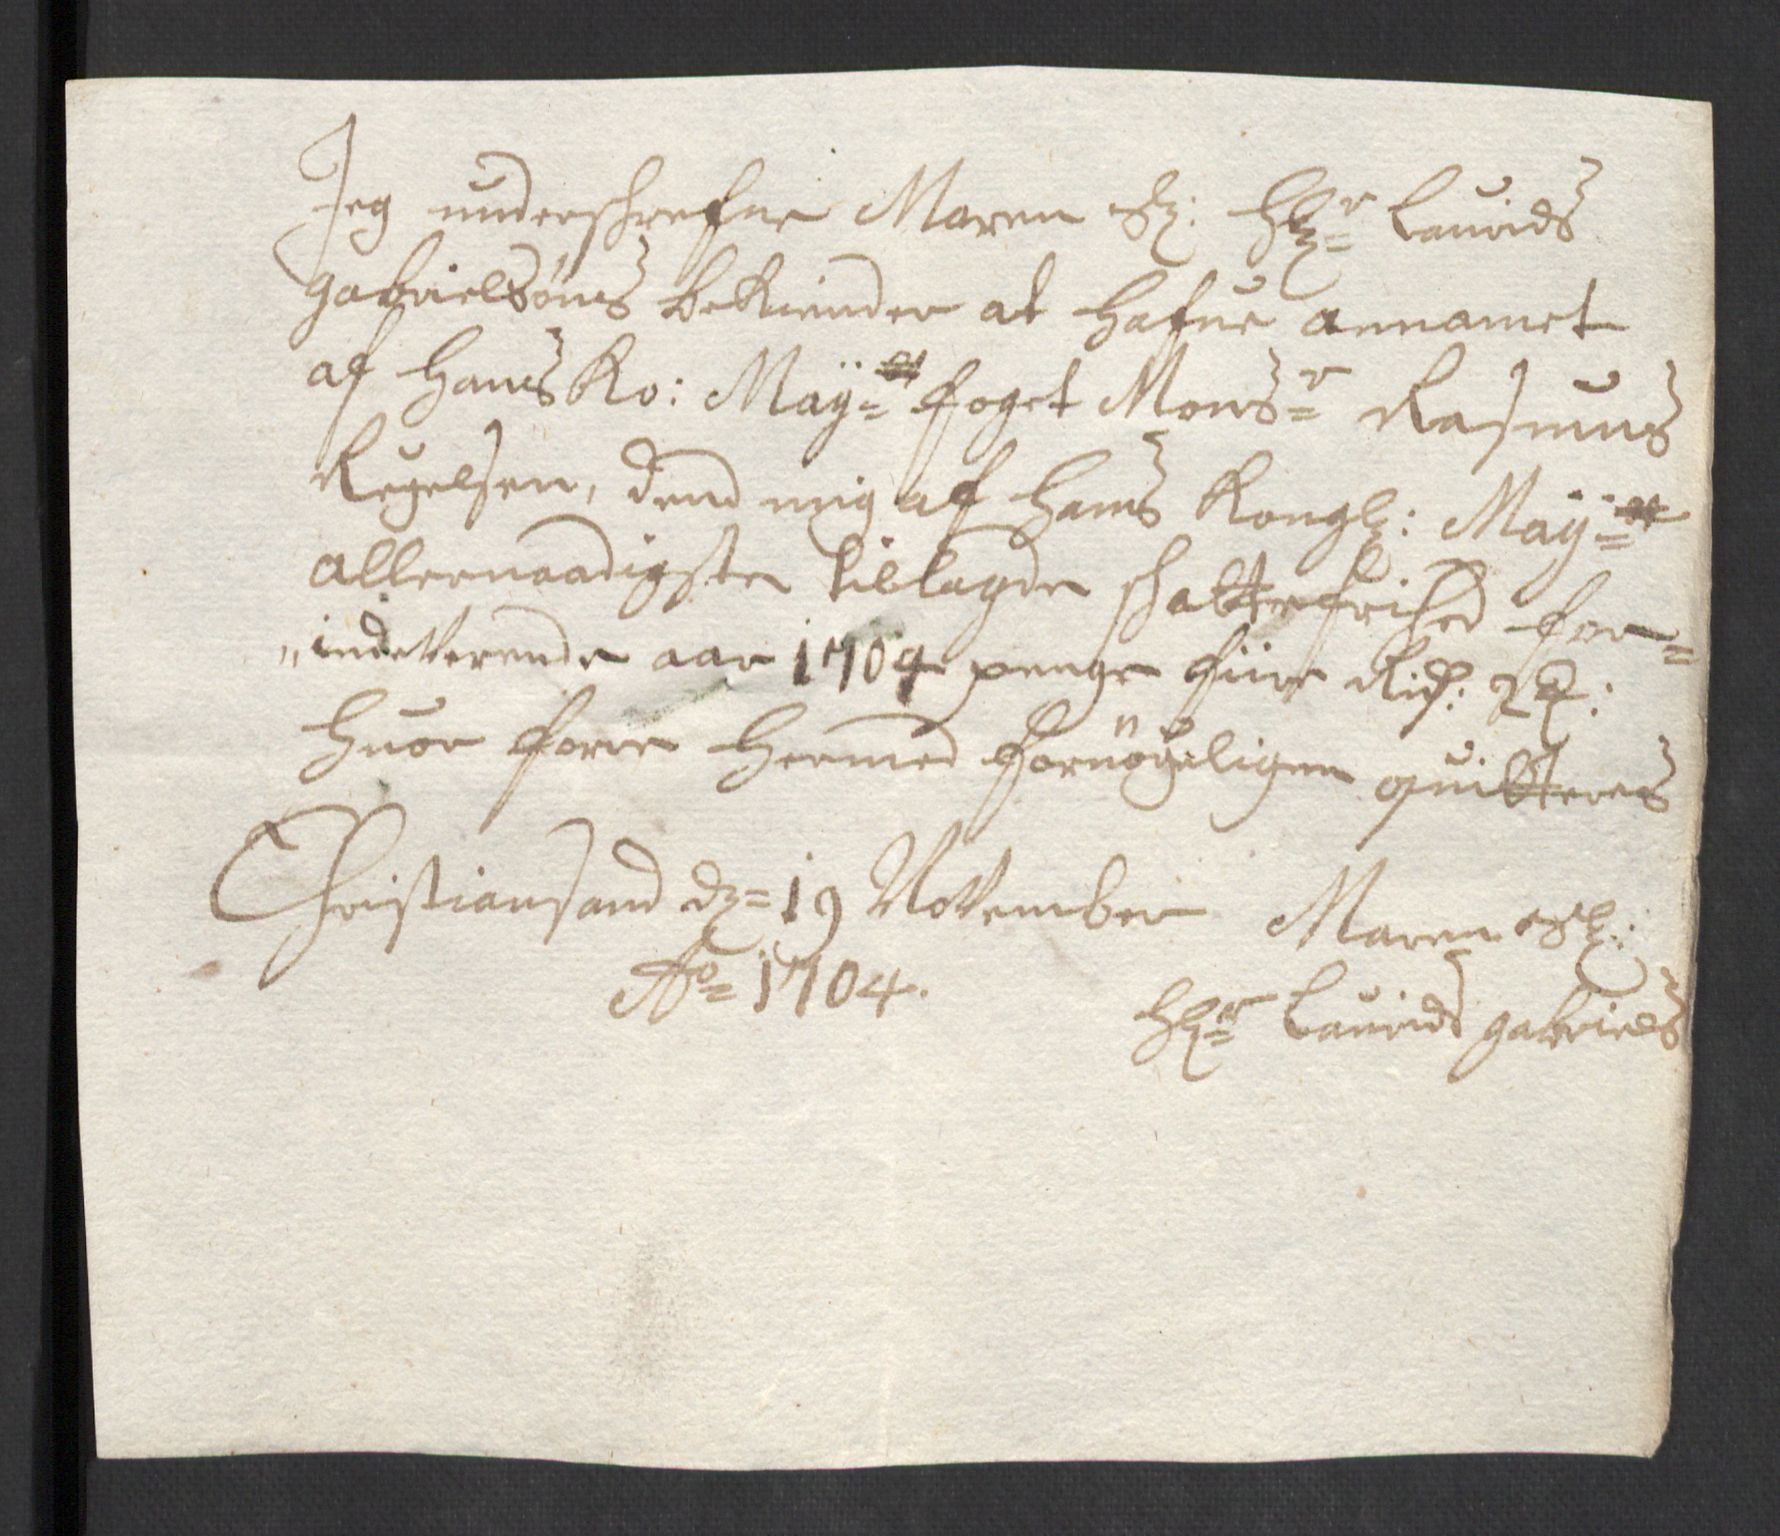 Jeg underschrefne Maren Sl: Hr= Laurids
gabrielsøns bekiender at hafue annamet
af Hans Ko: Maÿ=tt foget Mons=r Rasmus
Regelsen, dend mig af Hans Kongl: Maÿ=tt
allernaadigste tillagde schattefrihed for=
"indeverende aar 1704 penge fiire Rix: D:
huor forre hermed fornøÿeligen quitteres
Christiansand d= 19 November Maren Sl:
Ao= 1704. Hr= Laurids gabriels